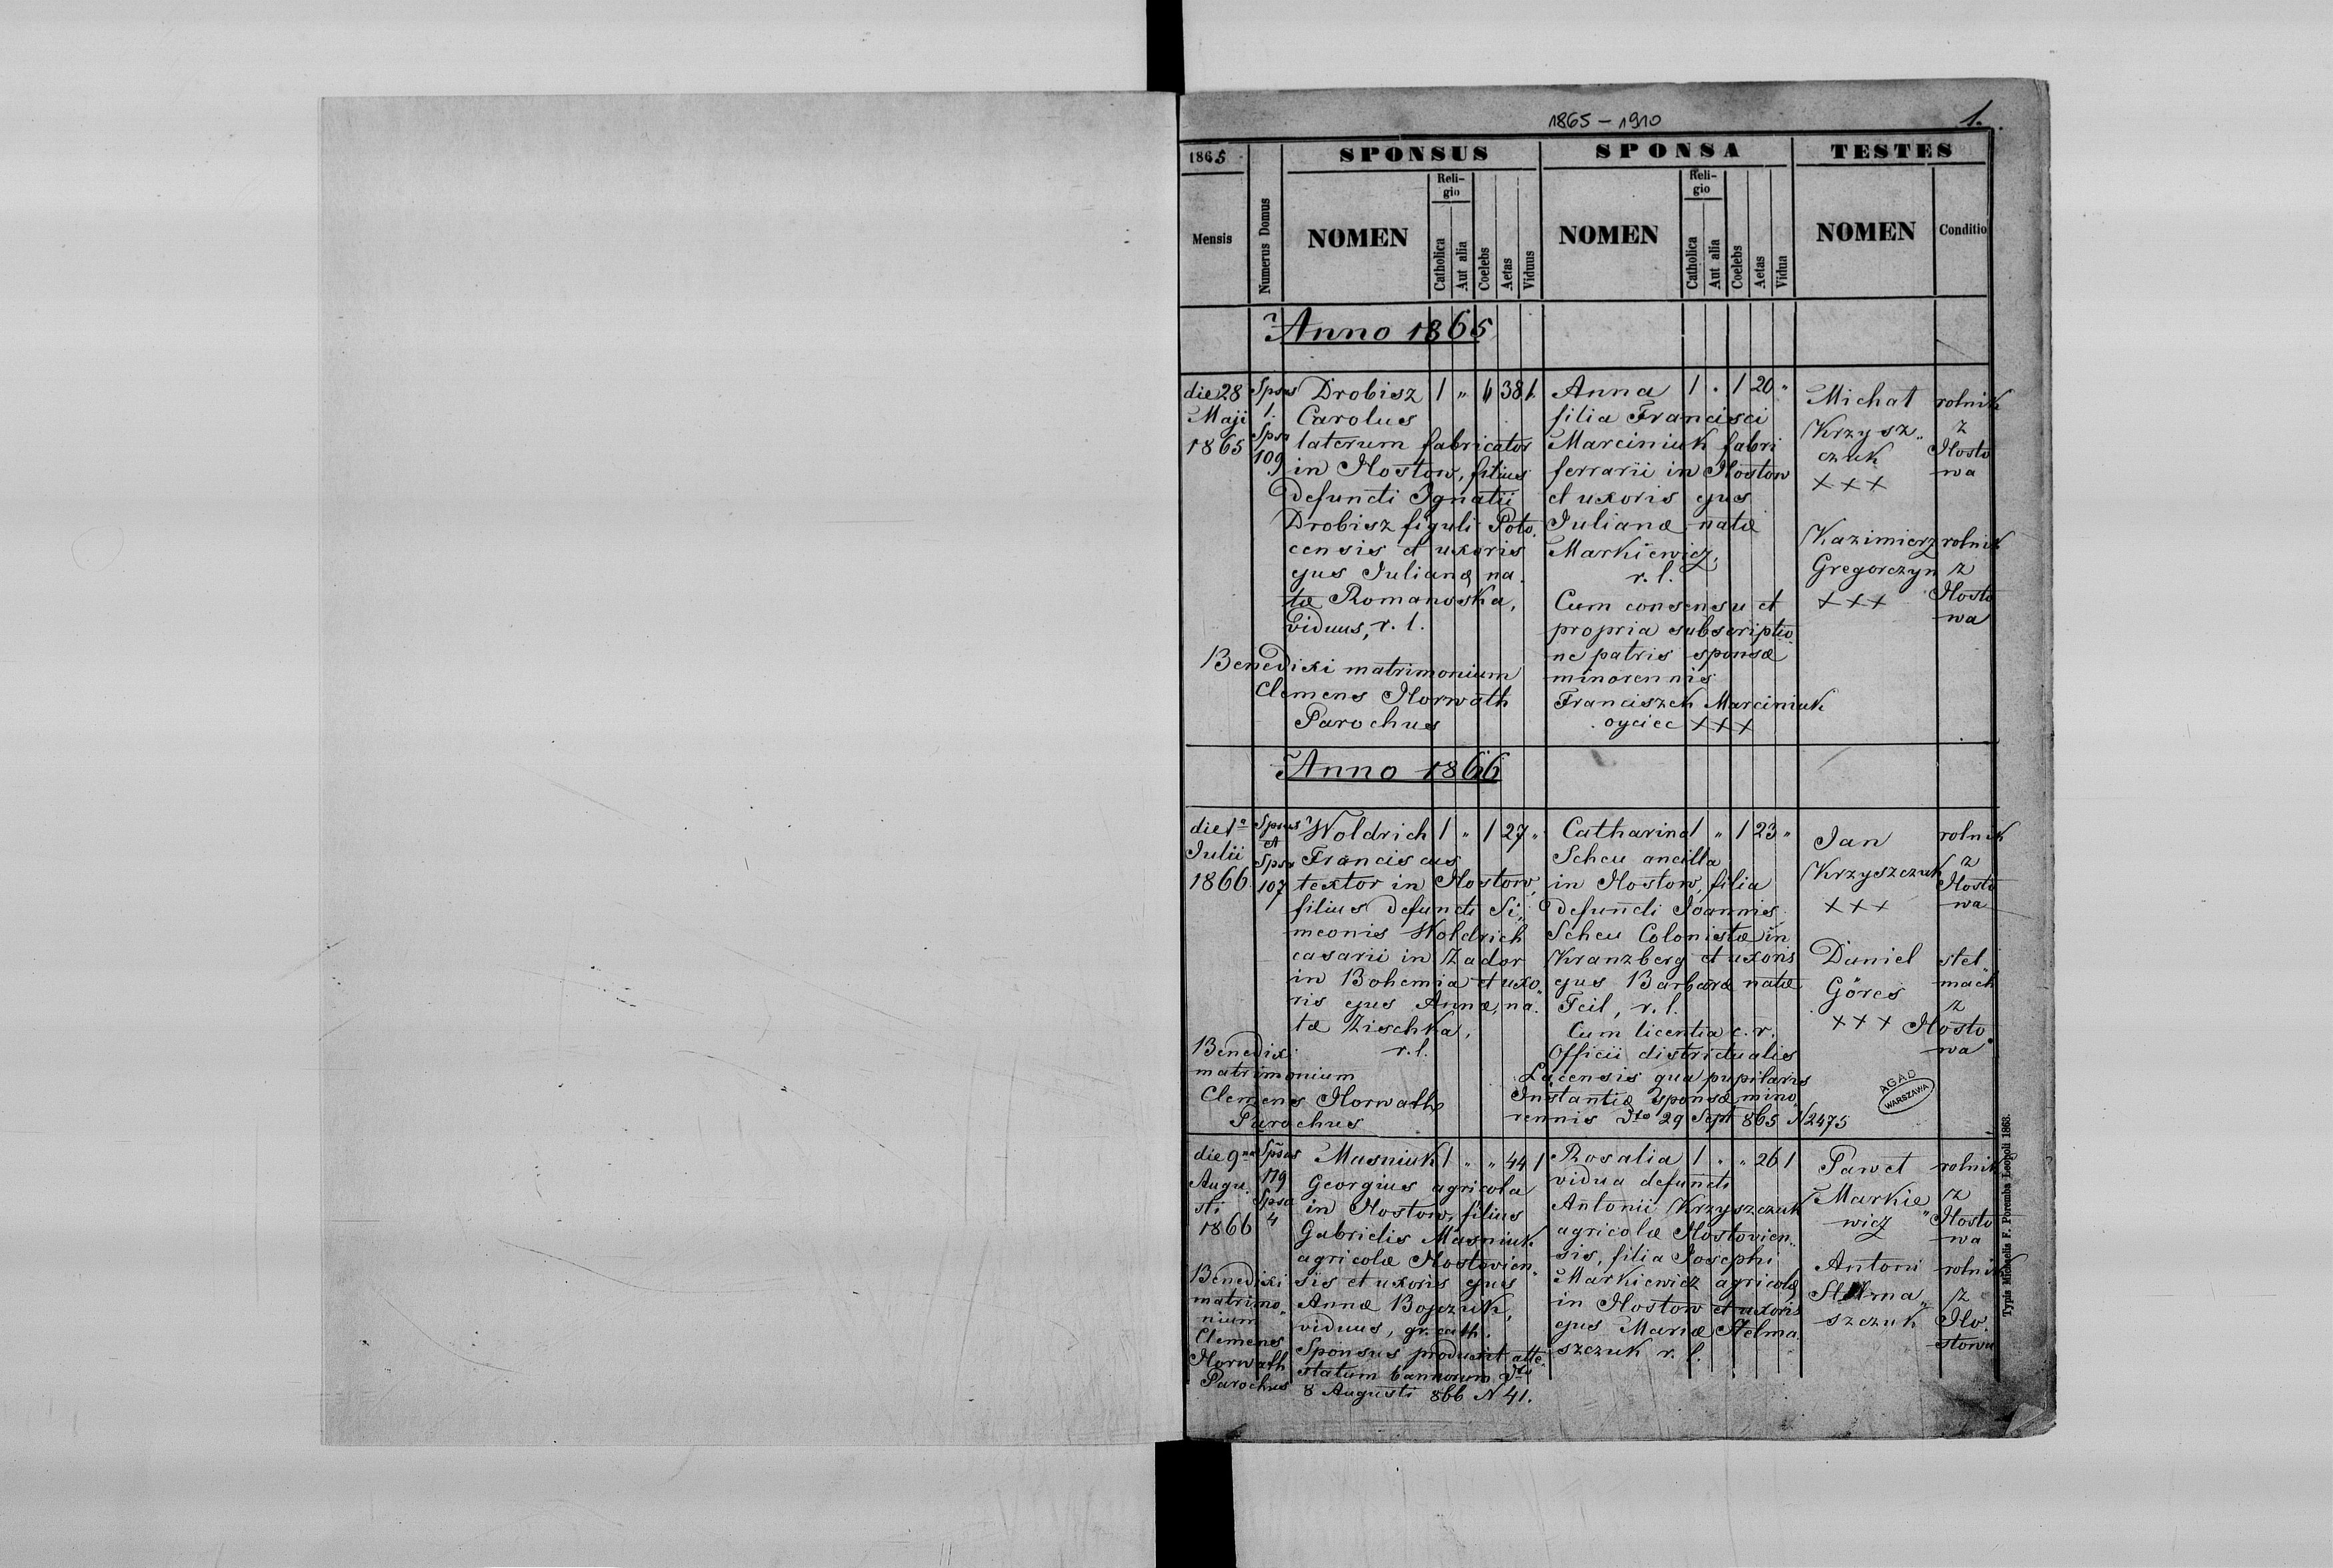 1865 – 1910
1.
1865
SPONSUS
SPONSA
TESTES
Mensis
Numerus Domus
NOMEN
Reli-
gio
Catholica
Aut alia
Coelebs
Aetas
Viduus
NOMEN
Reli-
gio
Catholica
Aut alia
Coelebs
Aetas
Vidua
NOMEN
Conditio
Anno 1865
die 28
Maji
1865
Spsus
1.
Spsa
109
Drobisz 1 „ „ 38 1.
Carolus
laterum fabricator
in Hostow, filius
defuncti Ignatii
Drobisz figuli Poto.
censis et uxoris
ejus Julianæ na.
tæ Romanoska,
viduus, r. l.
Benedixi matrimonium
Clemens Horwath
Parochus
Anna 1 . 1 20 „
filia Francisci
Marciniuk fabri
ferrarii in Hostow
et uxoris ejus
Julianæ natæ
Markiewicz,
r. l.
Cum consensu et
propria subscriptio
ne patris sponsæ
minorennis
Franciszek Marciniuk
oyciec +++
Michał
Krzysz„
czuk
+++
rolnik
z
Hosto
wa
Kazimierz
Gregorczyn
+++
rolnik
z
Hosto
wa
Anno 1866
die 1a
Julii
1866
Spsus
et
Spsa
107
Woldrich 1 „ 1 27 „
Franciscus
textor in Hostow,
filius defuncti Si„
meonis Woldrich
casarii in Zador
in Bohemia et uxo„
ris ejus Annæ, na.
tæ Zischka,
r. l.
Benedixi
matrimonium
Clemens Horwath
Parochus
Catharina 1 „ 1 23 „
Scheu ancilla
in Hostow, filia
defuncti Joannis
Scheu Colonistæ in
Kranzberg et uxoris
ejus Barbaræ natæ
Feil, r. l.
Cum licentia c. r.
Officii districtualis
Lacensis qua pupilaris
Instantiæ sponsæ mino„
rennis dto 29 Sept 865 N 2475
Jan
Krzyszczuk
+++
rolnik
z
Hosto
wa
Daniel
Göres
+++
stel
mach
z
Hosto
wa
AGAD
WARSZAWA
die 9na
Augu.
sti
1866
Spsus
179
Spsa
4
Benedixi
matrimo„
nium
Clemens
Horwath
Parochus
Musniuk 1 „ „ 44 1
Georgius agricola
in Hostow, filius
Gabrielis Musniuk
agricolæ Hostovien„
sis et uxoris ejus
Annæ Bojczuk,
viduus, gr. cath.
Sponsus produxit atte.
statum bannorum dto
8 Augusti 866 N 41.
Rosalia 1 „ „ 26 1
vidua defuncti
Antonii Krzyszczuk
agricolæ Hostovien„
sis, filia Josephi
Markiewicz agricolæ
in Hostow et uxoris
ejus Mariæ Stelma.
szczuk r. l.
Paweł
Markie„
wicz
rolnik
z
Hosto
wa
Antoni
Stelma„
szczuk
rolnik
z
Ho.
stowa
Typis Michaelis F. Poremba Leopoli 1863.